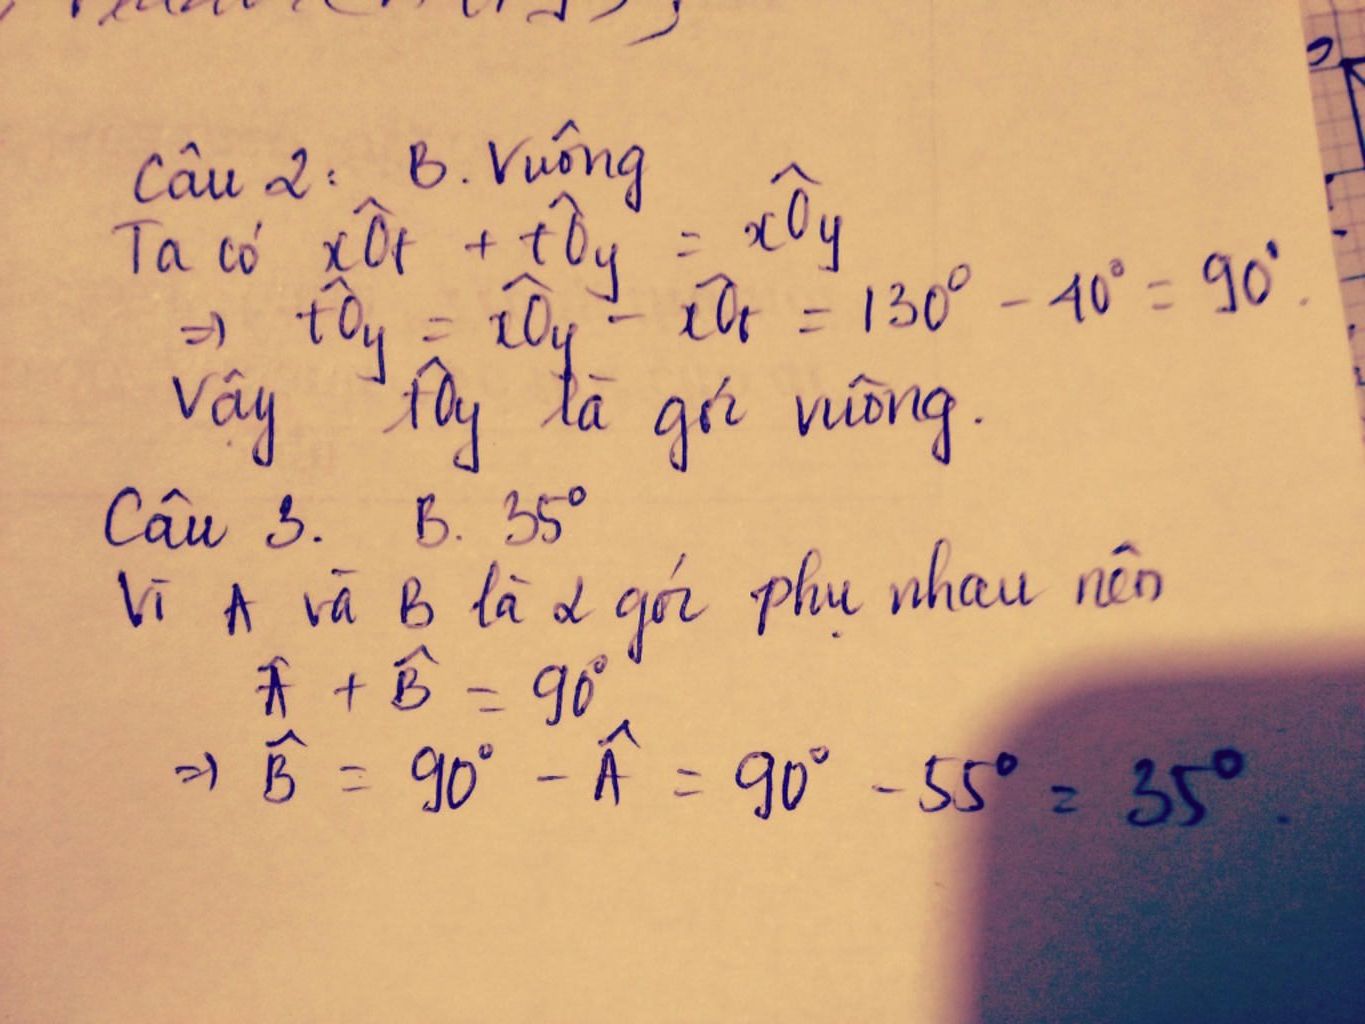 Câu 2: B. Vuông
Ta có xÔt + tÔy = xÔy
=> tÔy = xÔy - xÔt = 130° - 40° = 90°.
Vậy tÔy là góc vuông.
Câu 3. B. 35°
Vì A và B là 2 góc phụ nhau nên
Â + B̂ = 90°
=> B̂ = 90° - Â = 90° - 55° = 35°.